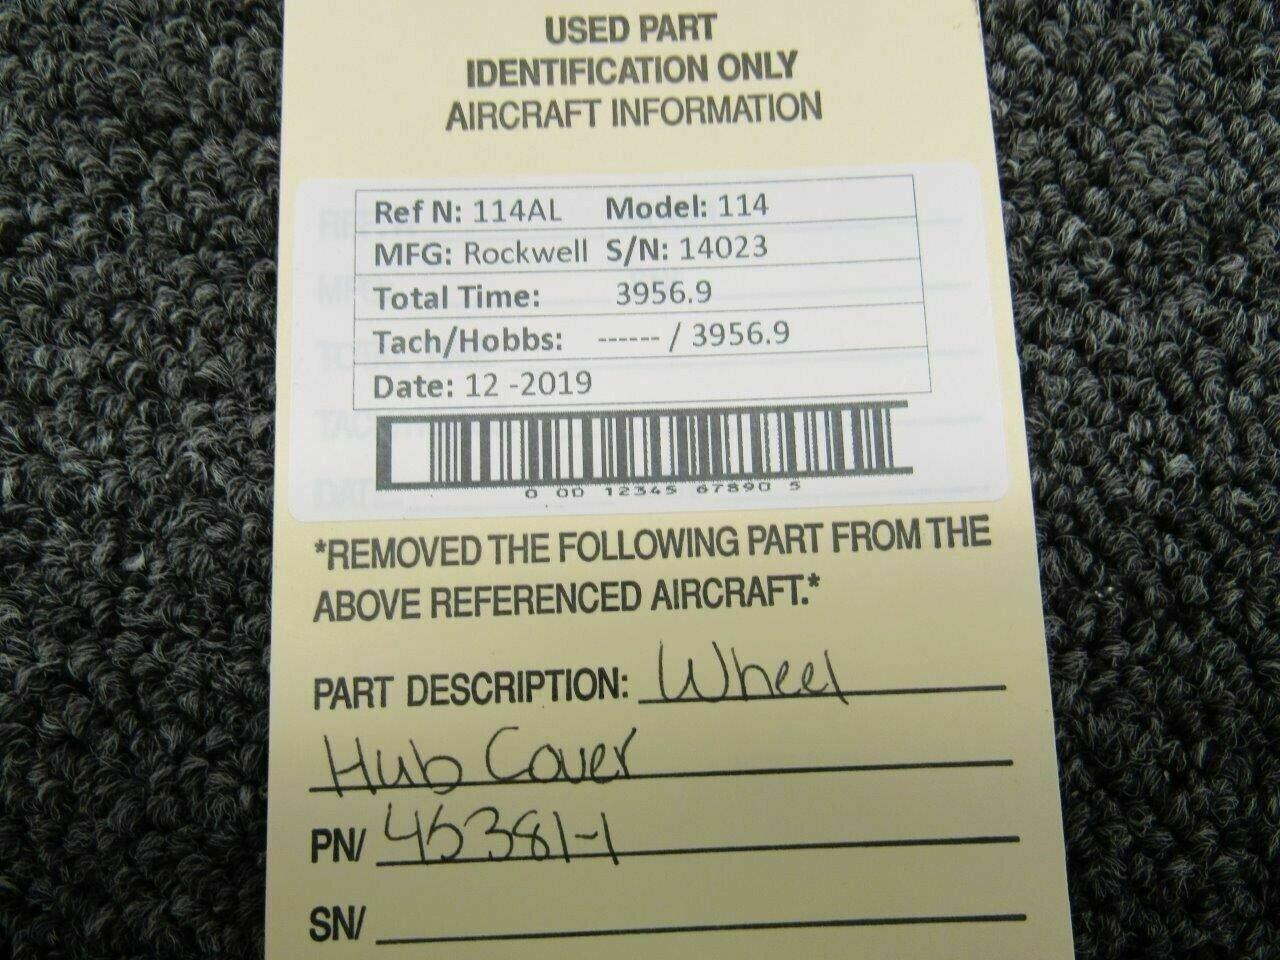 USED PART
IDENTIFICATION ONLY
AIRCRAFT INFORMATION
Ref N: 114AL Model: 114
MFG: Rockwell S/N: 14023
Total Time: 3956.9
Tach/Hobbs: ------ / 3956.9
Date: 12 -2019
0 00 12345 67890 5
*REMOVED THE FOLLOWING PART FROM THE
ABOVE REFERENCED AIRCRAFT.*
PART DESCRIPTION: Wheel
Hub Cover
PN/ 45381-1
SN/